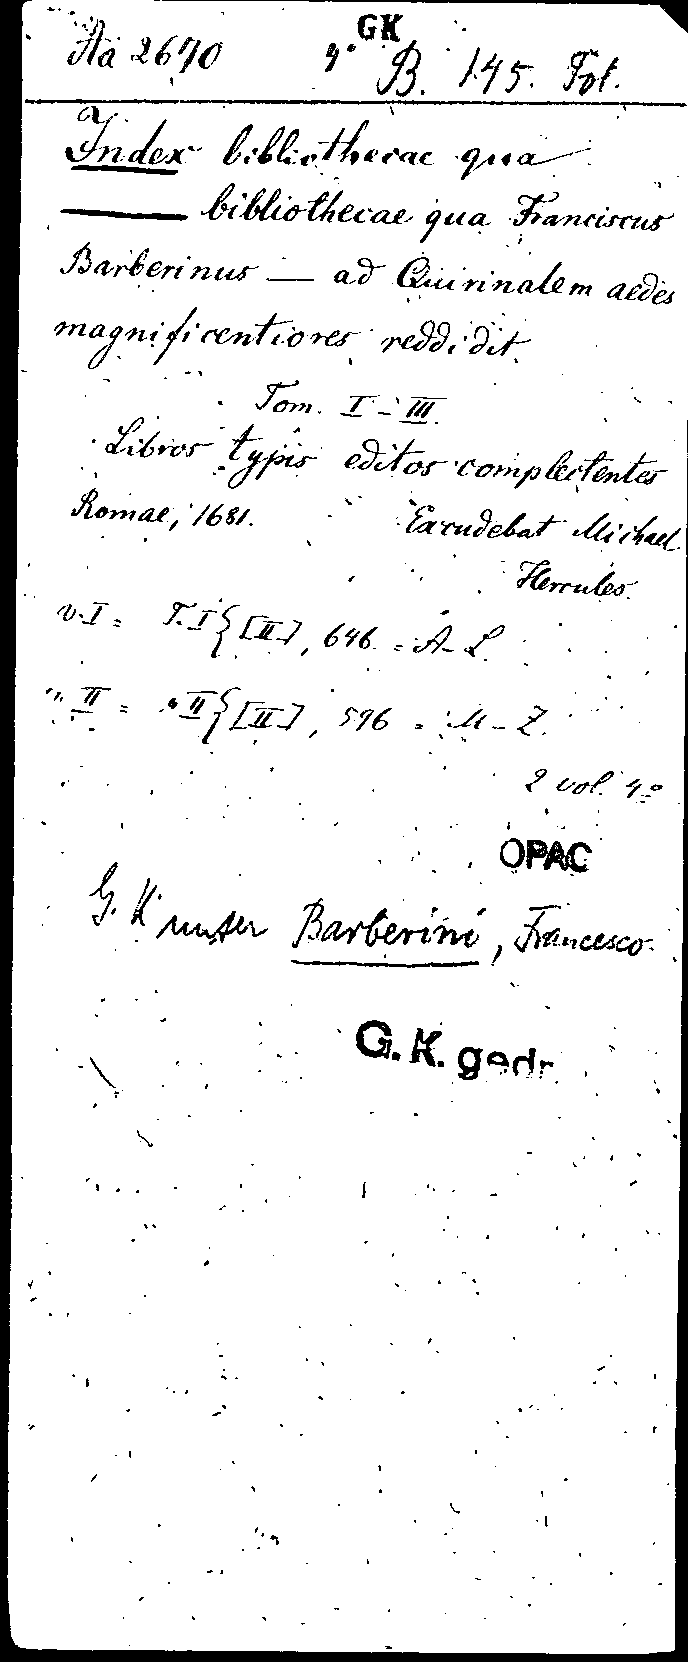 GK
Aä 2670 4° B. 145. Fol.
Index bibliothecae qua
——— bibliothecae qua Franciscus
Barberinus — ad Quirinalem aedes
magnificentiores reddidit.
Tom. I - III.
Libros typis editos complectentes
Romae, 1681. Excudebat Michael
Hercules.
v. I = T. I {[II], 646. = A - L.
" II = " II {[II], 596 = M - Z.
2 vol. 4°
OPAC
G. K unter Barberini, Francesco.
G. K. gedr.